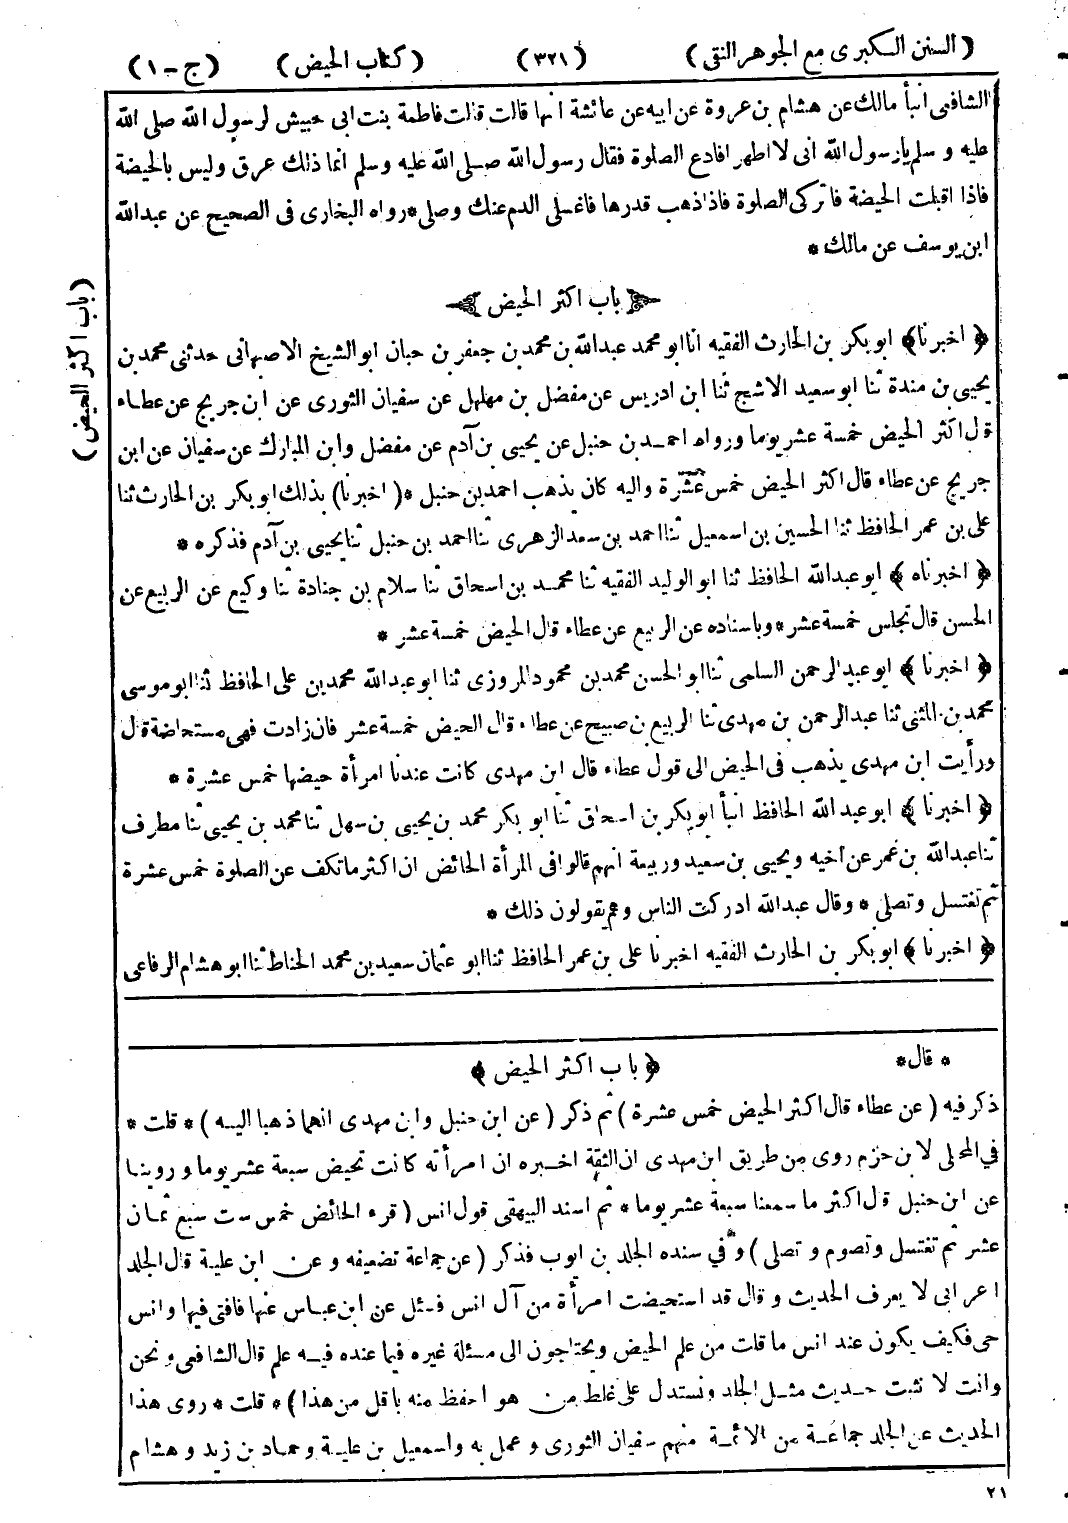 ( السنن الكبرى مع الجوهر النقى ) ( ٣٢١ ) ( كتاب الحيض ) ( ج - ١ )
الشافعى انبأ مالك عن هشام بن عروة عن ابيه عن عائشة انها قالت قالت فاطمة بنت ابى حبيش لرسول الله صلى الله
عليه و سلم يا رسول الله انى لا اطهر افادع الصلوة فقال رسول الله صلى الله عليه وسلم انما ذلك عرق وليس بالحيضة
فاذا اقبلت الحيضة فاتركى الصلوة فاذا ذهب قدرها فاغسلى الدم عنك وصلى * رواه البخارى فى الصحيح عن عبدالله
ابن يوسف عن مالك *
﴿ باب اكثر الحيض ﴾
﴿ اخبرنا ﴾ ابو بكر بن الحارث الفقيه انا ابو محمد عبدالله بن محمد بن جعفر بن حبان ابو الشيخ الاصبهانى حدثنى محمد بن
يحيى بن مندة ثنا ابو سعيد الاشج ثنا ابن ادريس عن مفضل بن مهلهل عن سفيان الثورى عن ابن جريج عن عطاء
قال اكثر الحيض خمسة عشر يوما ورواه احمد بن حنبل عن يحيى بن آدم عن مفضل وابن المبارك عن سفيان عن ابن
جريج عن عطاء قال اكثر الحيض خمس عشرة واليه كان يذهب احمد بن حنبل * ( اخبرنا ) بذلك ابو بكر بن الحارث ثنا
على بن عمر الحافظ ثنا الحسين بن اسمعيل ثنا احمد بن سعد الزهرى ثنا احمد بن حنبل ثنا يحيى بن آدم فذكره *
﴿ اخبرناه ﴾ ابو عبدالله الحافظ ثنا ابو الوليد الفقيه ثنا محمد بن اسحاق ثنا سلام بن جنادة ثنا وكيع عن الربيع عن
الحسن قال تجلس خمسة عشر * وباسناده عن الربيع عن عطاء قال الحيض خمسة عشر *
﴿ اخبرنا ﴾ ابو عبد الرحمن السلمى ثنا ابو الحسن محمد بن محمود المروزى ثنا ابو عبدالله محمد بن على الحافظ ثنا ابو موسى
محمد بن المثنى ثنا عبدالرحمن بن مهدى ثنا الربيع بن صبيح عن عطاء قال الحيض خمسة عشر فان زادت فهى مستحاضة قال
ورأيت ابن مهدى يذهب فى الحيض الى قول عطاء قال ابن مهدى كانت عندنا امرأة حيضها خمس عشرة *
﴿ اخبرنا ﴾ ابو عبد الله الحافظ انبأ ابو بكر بن اسحاق ثنا ابو بكر محمد بن يحيى بن سهل ثنا محمد بن يحيى ثنا مطرف
ثنا عبدالله بن عمر عن اخيه ويحيى بن سعيد وربيعة انهم قالوا فى المرأة الحائض ان اكثر ما تكف عن الصلوة خمس عشرة
ثم تغتسل وتصلى * وقال عبدالله ادركت الناس وهم يقولون ذلك *
﴿ اخبرنا ﴾ ابو بكر بن الحارث الفقيه اخبرنا على بن عمر الحافظ ثنا ابو عثمان سعيد بن محمد الحناط ثنا ابو هشام الرفاعى
( باب اكثر الحيض )
* قال * ﴿ باب اكثر الحيض ﴾
ذكر فيه ( عن عطاء قال اكثر الحيض خمس عشرة ) ثم ذكر ( عن ابن حنبل وابن مهدى انهما ذهبا اليه ) * قلت *
في المحلى لابن حزم روى من طريق ابن مهدى ان الثقة اخبره ان امرأته كانت تحيض سبعة عشر يوما و روينا
عن ابن حنبل قال اكثر ما سمعنا سبعة عشر يوما * ثم اسند البيهقى قول انس ( قرء الحائض خمس ست سبع ثمان
عشر ثم تغتسل وتصوم و تصلى ) وفي سنده الجلد بن ايوب فذكر ( عن جماعة تضعيفه وعن ابن علية قال الجلد
اعرابى لا يعرف الحديث و قال قد استحيضت امرأة من آل انس فسئل عن ابن عباس عنها فافتى فيها وانس
حى فكيف يكون عند انس ما قلت من علم الحيض ويحتاجون الى مسئلة غيره فيما عنده فيه علم قال الشافعى و نحن
وانت لا نثبت حديث مثل الجلد ونستدل على غلط من هو احفظ منه باقل من هذا ) * قلت * روى هذا
الحديث عن الجلد جماعة من الائمة منهم سفيان الثورى وعمل به واسمعيل بن علية وحماد بن زيد وهشام
٢١